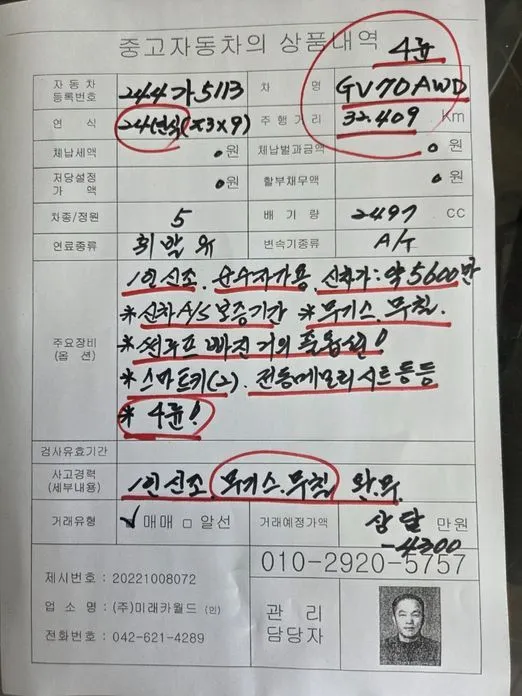 중고자동차의 상품내역
4륜
자동차등록번호 244가5113 차 명 GV70AWD
연 식 24년식(23×9) 주행거리 32.409 Km
체납세액 0원 체납벌과금액 0원
저당설정가액 0원 할부채무액 0원
차종/정원 5 배기량 2497 CC
연료종류 휘발유 변속기종류 A/T
주요장비(옵션)
1인신조. 순수자가용. 신차가: 약5600만
*신차A/S보증기간 *무기스.무칠.
*썬루프 빠진 거의 풀옵션!
*스마트키(2). 전동메모리시트등등
*4륜!
검사유효기간
사고경력(세부내용) 1인신조. 무기스.무칠. 완.무.
거래유형 ✓ 매매 □ 알선 거래예정가액 상담 만원
-4300
010-2920-5757
제시번호 : 20221008072
업 소 명 : (주)미래카월드 (인)
전화번호 : 042-621-4289
관 리
담당자